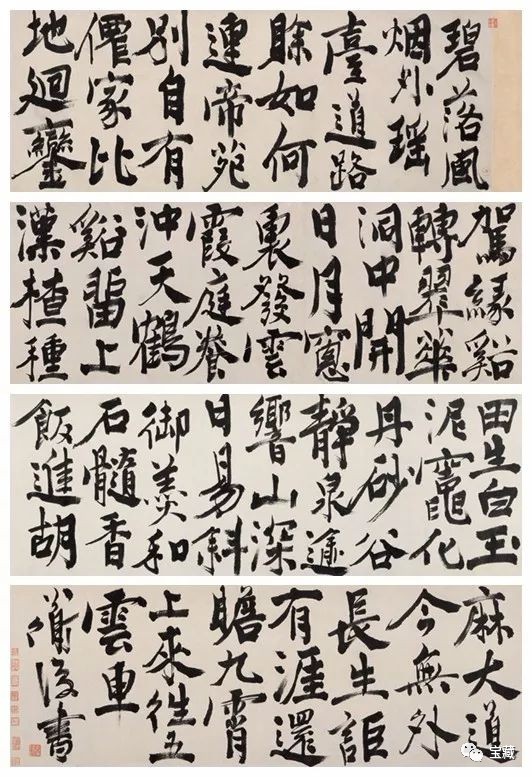 碧落風
烟外瑶
臺道路
賖如何
連帝苑
別自有
僊家比
地廻鑾
駕緣谿
轉翠華
洞中開
日月窻
裏發雲
霞庭養
沖天鶴
谿畱上
漢楂種
田生白玉
泥竈化
丹砂谷
靜泉逾
響山深
日易斜
御羹和
石髓香
飯進胡
麻大道
今無外
長生詎
有涯還
瞻九霄
上來往五
雲車
書
宝藏